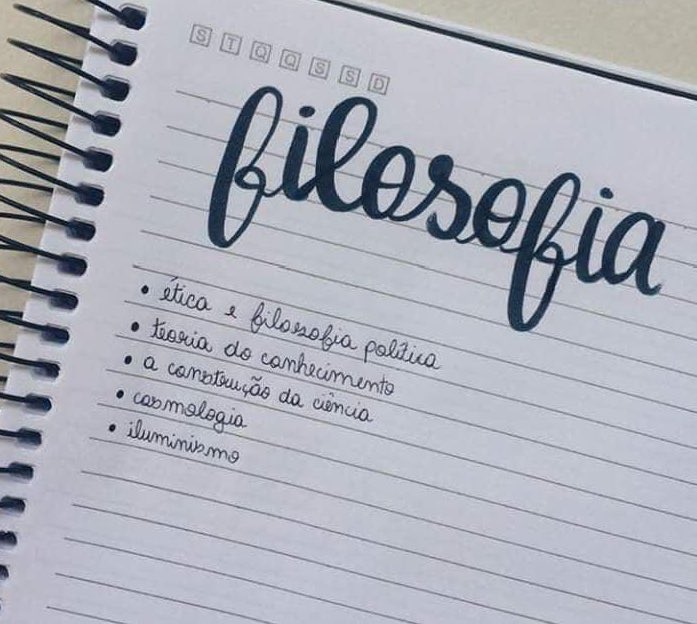 S T Q Q S S D
filosofia
• ética e filosofia política
• teoria do conhecimento
• a construção da ciência
• cosmologia
• iluminismo